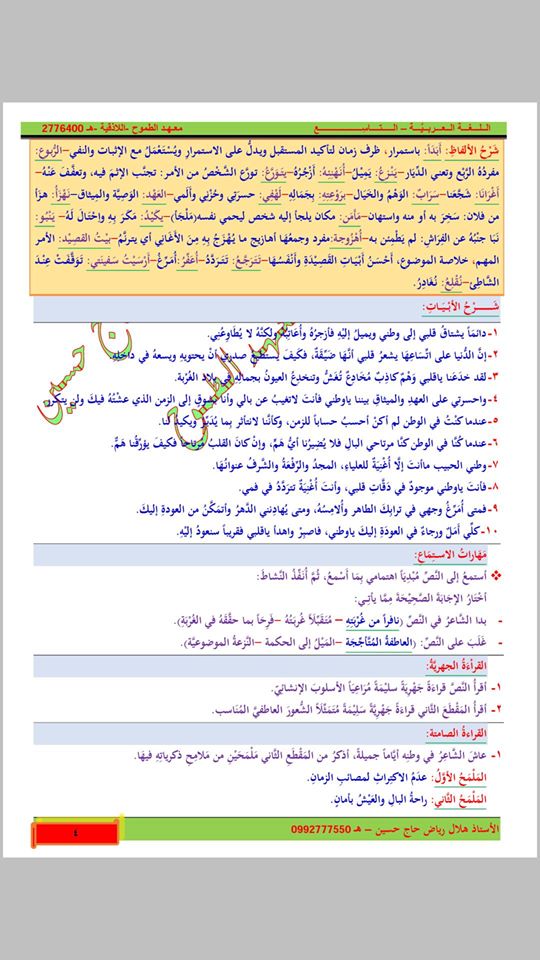 اللـغـة الـعـربـيّـة – الـتـاسـع معهد الطموح -اللاذقية -هـ 2776400
شَرْحُ الألفاظِ: أَبَدَاً: باستمرار، ظرف زمان لتأكيد المستقبل ويدلُّ على الاستمرارِ ويُسْتَعْمَلُ مع الإثبات والنفي–الرُّبوع:
مفردُهُ الرَّبْع وتعني الدِّيَار–يَنْزِعُ: يَمِيْلُ–أَنَهْنِهُهُ: أَزْجُرُهُ–يَتَوَرَّعُ: تورَّع الشَّخْصُ من الأمر: تجنَّب الإثمَ فيه، وتعفَّفَ عَنْهُ–
أَغْرَانَا: شَجَّعَنا–سَرَابٌ: الوَهْمُ والخَيَال–بِرَوْعَتِهِ: بِجَمالِهِ–لَهْفِي: حسرَتي وحُزْني وأَلَمي–العَهْد: الوَصِيَّة والمِيثاق–نَهْزَأُ: هزَأَ
من فلان: سَخِرَ به أو منه واستهان–مَأمَن: مكان يلجأ إليه شخص ليحمي نفسه(مَلْجَأ)–يَكِيْدُ: مَكَرَ بِهِ واحْتَالَ لَهُ–يَنْبُو:
نَبَا جنْبُهُ عن الفِرَاش: لم يَطْمَئِن به–أُهْزُوجة:مفرد وجمعُهَا أهازيج ما يُهْزَجُ بِهِ مِنَ الأَغَانِي أي يترنَّمُ–بيْتُ القصِيد: الأمر
المهم، خلاصة الموضوع، أَحْسَنُ أَبْيَاتِ القَصِيْدَةِ وأنْفَسُهَا–تَتَرَجَّعُ: تَتَرَدَّدُ–أُعَفِّرُ:أُمَرِّغُ–أَرْسَيْتُ سَفينَتي: تَوَقَّفْتُ عِنْدَ
الشَّاطِئ–نُقْلِعُ: نُغَادِرُ.
شَـــرْحُ الأَبْـيَـاتِ:
١- دائمَاً يشتاقُ قلبي إلى وطني ويميلُ إليْهِ فأزجُرُهُ وأُعَاتِبُهُ ولكنَّهُ لا يُطَاوِعُنِي.
٢- إنَّ الدُّنيا على اتِّسَاعِهَا يشعرُ قلبي أنَّهَا ضَيِّقَةٌ، فكَيفَ يستطيعُ صدري أنْ يحتويهِ ويسعهُ في داخلِهِ
٣- لقد خدَعَنا ياقلبي وَهْمٌ كاذِبٌ مُخَادِعٌ تُغَشُّ وتنخَدِعُ العيونُ بجمالِهِ في بلادِ الغُرْبَة.
٤- واحسرتي على العهدِ والميثاقِ بيننا ياوطني فأنتَ لاتغيبُ عن بالي وأنا بشوقٍ إلى الزمن الذي عشْتُهُ فيكَ ولن يتكرَّر
٥- عندما كنْتُ في الوطن لم أكنْ أحسبُ حساباً للزمن، وكأنَّنا لانتأثر بما يُدَبِّرُ ويكيدُ لنا.
٦- عندما كُنَّا في الوطن كنَّا مرتاحي البالِ فلا يُضِيرُنا أيُّ هَمٍّ، وإنْ كانَ القلبُ مُرتاحاً فكيفَ يؤرِّقُنا هَمٌّ.
٧- وطني الحبيب ماأنتَ إلَّا أُغْنِيَةٌ للعلياءِ، المجدُ والرِّفْعَةُ والشَّرفُ عنوانُهَا.
٨- فأنتَ ياوطني موجودٌ في دَقَّاتِ قلبي، وأنتَ أُغْنِيَةٌ تتردَّدُ في فمي.
٩- فمتى أُمَرِّغُ وجهي في ترابِكَ الطاهر وأُلامِسُهُ، ومتى يُهادِنني الدَّهرُ وأتمَكَّنُ من العودةِ إليكَ.
١٠- كلِّي أمَلٌ ورجاءٌ في العودَةِ إليكَ ياوطني، فاصبرْ واهدأ ياقلبي فقريباً سنعودُ إليْهِ.
مَهَارَاتُ الاستِمَاعِ:
❖ أستمعُ إلى النَّصِّ مُبْدِيَاً اهتمامي بِمَا أَسْمَعُ، ثمَّ أُنَفِّذُ النَّشاطَ:
أَخْتَارُ الإجَابَةَ الصَّحِيْحَةَ مِمَّا يأتـي:
- بدا الشَّاعرُ في النَّصِّ (نافراً من غُرْبَتِهِ – مُتَقَبِّلَاً غُرْبَتَهُ –فَرِحَاً بما حقَّقَهُ في الغُرْبَةِ).
- غَلَبَ على النَّصِّ: (العاطفةُ المُتَأَجِّجَة –المَيْلُ إلى الحكمة –النَّزعةُ الموضوعيَّة).
القراءَةُ الجهريَّةُ:
١- أقرأُ النَّصَّ قراءَةً جَهْرِيَّةً سليْمَةً مُرَاعِيَاً الأسلوبَ الإنشائِيَّ.
٢- أقرأُ المَقْطَعَ الثَّاني قراءةً جَهْرِيَّةً سَلِيْمَةً مُتَمَثِّلَاً الشُّعورَ العاطفيَّ المُنَاسب.
القراءةُ الصامتة:
١- عاشَ الشَّاعِرُ في وطنِهِ أيَّاماً جميلةً، أذكرُ من المَقْطَعِ الثَّاني مَلْمَحَيْنِ من مَلامِحِ ذكرياتِهِ فيهَا.
المَلْمَحُ الأوَّلُ: عدَمُ الاكتِرَاثِ لمصائبِ الزمَانِ.
المَلْمَحُ الثَّاني: راحةُ البالِ والعَيْشُ بأمانٍ.
الأستاذ هلال رياض حاج حسين – هـ 0992777550
٤